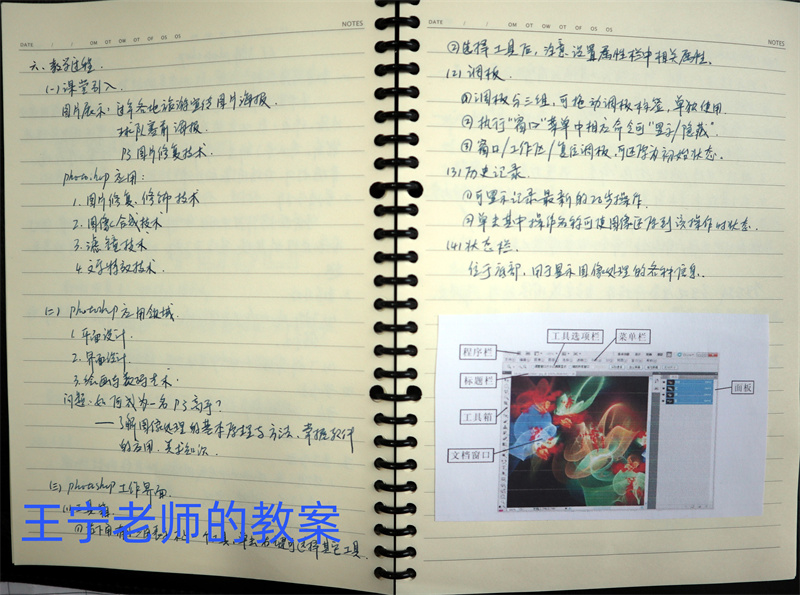 NOTES
DATE / / OM OT OW OT OF OS OS
六、教学过程.
(一)课堂引入
图片展示:近年各地旅游宣传图片海报.
球队赛前海报.
PS图片修复技术.
photoshop应用:
1.图片修复、修饰技术
2.图像合成技术
3.滤镜技术
4.文字特效技术.
(二) photoshop应用领域.
1.平面设计.
2.界面设计.
3.绘画与数码艺术.
问题:如何成为一名PS高手?
——了解图像处理的基本原理与方法、掌握软件
的应用、美术知识.
(三) photoshop工作界面.
(1)工具箱.
王宁老师的教案
可选择其它工具.
DATE / / OM OT OW OT OF OS OS
NOTES
②选择工具后,注意设置属性栏中相关属性.
(2)调板.
①调板分三组,可拖动调板标签,单独使用.
②执行“窗口”菜单中相应命令可“显示/隐藏”.
③窗口/工作区/复位调板,可还原为初始状态.
(3)历史记录.
①可显示记录最新的20步操作.
②单击其中操作名称可使图像还原到该操作时状态.
(4)状态栏.
位于底部,用于显示图像处理的各种信息.
工具选项栏
菜单栏
程序栏
标题栏
面板
工具箱
文档窗口